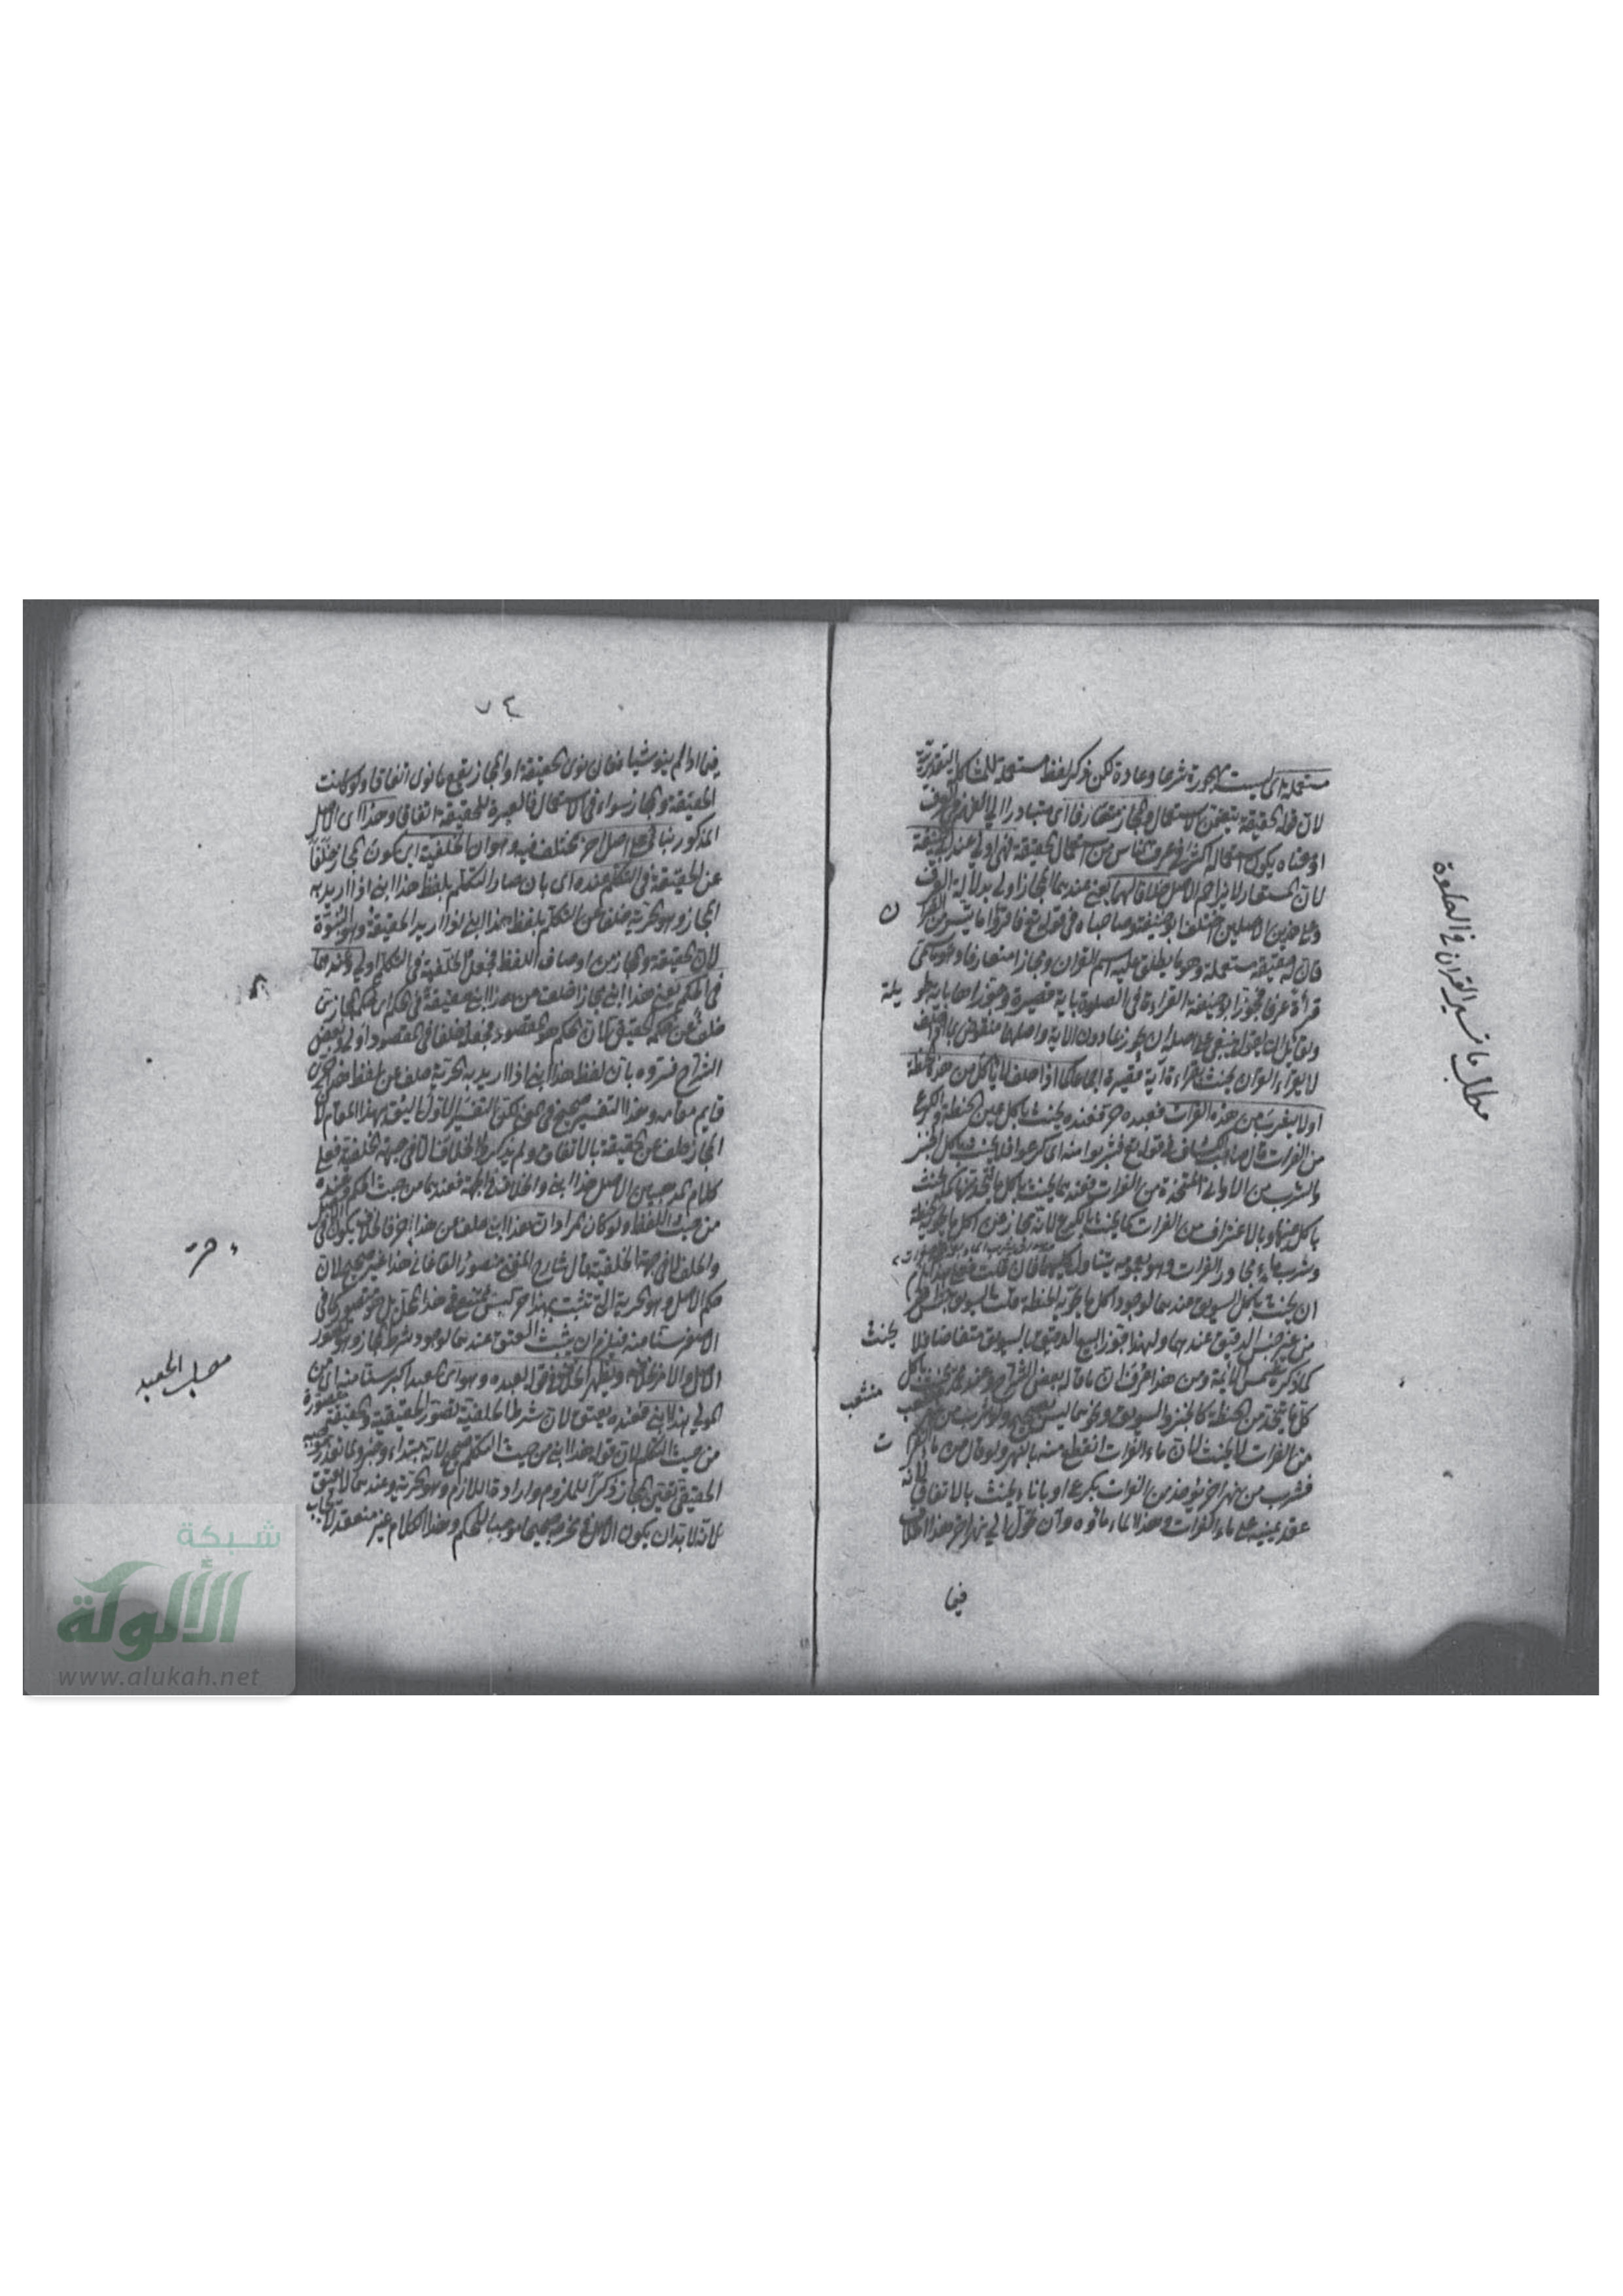 مستعملة اى ليست مهجورة شرعا وعادة لكن ذكر لفظ مستعملة للمشاكلة التقديرية
لان قوله الحقيقة يتضمن الاستعمال والمجاز متعارفا اى متبادرا الى الفهم فى العرف
او معناه يكون استعماله اكثر فى عرف الناس من استعمال الحقيقة فهى اولى عند ابى حنيفة
لان المستعار لا يزاحم الاصل خلافا لهما يعنى عندهما المجاز اولى بدلالة العرف
وعلى هذين الاصلين اختلف ابو حنيفة وصاحباه فى قوله تع فاقرؤا ما تيسر من القران
فان له حقيقة مستعملة وهو ما يطلق عليه اسم القران ومجازا متعارفا وهو ما يسمى
قرأة عرفا فجوز ابو حنيفة القراءة فى الصلوة باية قصيرة وجوزاها باية طو
يلة
ولقائل ان يقول ينبغى على اصله ان يجوز بما دون الاية
لا يقرأ القرآن يحنث بقراءة آية قصيرة اجماعا كما اذا حلف لا يأكل من هذه الحنطة
او لا يشرب من هذه الفرات فعبده حر فعنده يحنث باكل عين الحنطة والكرع
من الفرات قال صاحب الكشاف فى قوله تع فشربوا منه اى كرعوا فلا يحنث باكل الخبز
والشرب من الاوانى المتخذة من الفرات فعندهما يحنث باكل ما يتخذ منها كما يحنث
باكل عينها وبالاغتراف من الفرات كما يحنث بالكرع لانه مجاز عن اكل ما تحويه الحنطة
وشرب ماء مجاور الفرات وهو بعمومه يتناول كليهما فان قلت فعلى هذا يلزم
ان يحنث باكل السويق عندهما لوجود اكل ما تحويه الحنطة قلت السويق جنس اخر
من غير جنس الدقيق عندهما ولهذا جوزا بيع الدقيق بالسويق متفاضلا فلا
يحنث
كما ذكره شمس الائمة ومن هذا عرف ان ما قاله بعض الشراح وعندهما يحنث باكل
كل ما يتخذ من الحنطة كالخبز والسويق ونحوهما ليس بصحيح ولو شرب من نهر
منشعب
من الفرات لا يحنث لان ماء الفرات انقطع منه بالنهر ولو قال من ماء الفرات
فشرب من نهر اخر يؤخذ من الفرات بكرع او باناء يحنث بالاتفاق لانه
عقد يمينه على ماء الفرات وهذا الماء ماؤه وان تحول الى نهر اخر هذا الخلاف
فيما
مطلب ما تيسر القران فى الصلوة
٧٤
فيما اذا لم ينو شيئا فان نوى الحقيقة او المجاز يقع ما نوى اتفاقا ولو كانت
الحقيقة والمجاز سواء فى الاستعمال فالعبرة للحقيقة اتفاقا وهذا اى الاصل
المذكور بناء على اصل اخر مختلف فيه وهو ان الخلفية اى كون المجاز خلفا
عن الحقيقة فى التكلم عنده اى بان صار التكلم بلفظ هذا ابنى اذا اريد به
المجاز وهو الحرية خلفا عن التكلم بلفظ هذا ابنى اذا اريد الحقيقة وهو البنوة
لان الحقيقة والمجاز من اوصاف اللفظ فجعل الخلفية فى التكلم اولى وعندهما
فى الحكم يعنى هذا ابنى مجازا خلف من هذا ابنى حقيقة فى الحكم اى حكم المجازى
خلف عن حكم الحقيقى لان الحكم هو المقصود فجعله خلفا فى المقصود اولى وبعض
الشراح فسروه بان لفظ هذا ابنى اذا اريد به الحرية خلف عن لفظ هذا حر
قايم مقامه وهذا التفسير صحيح فى المعنى لكن التفسير الاول اليق بهذا المقام لان
المجاز خلف عن الحقيقة بالاتفاق ولم يذكروا الخلاف الا فى جهة الخلفية فعلى
كلام المذهبين الاصل هذا ابنى والخلاف فى الجهة فعندهما من حيث الحكم وعنده
من حيث اللفظ ولو كان المراد ان هذا ابنى خلف عن هذا حر فالخلاف يكون فى الاصل
والخلف لا فى جهة الخلفية قال شارح المغنى منصور القاءانى هذا غير صحيح لان
حكم الاصل وهو الحرية التى تثبت بهذا حر ليس بممتنع فى هذا المحل بل هو متصور كما فى
الاصغر سنا منه فينبغى ان يثبت العتق عندهما لوجود شرط المجاز وهو تصور
الاصل والامر بخلافه ويظهر الخلاف فى قوله لعبده وهو اى العبد اكبر سنا منه اى من
المولى هذا ابنى فعنده يعتق لان شرط الخلفية تصور الحقيقة والحقيقة متصورة
من حيث التكلم لان قوله هذا ابنى من حيث التكلم صحيح لانه مبتداء وخبر ولما تعذر
الحقيقى تعين المجاز ذكرا للملزوم وارادة اللازم وهو الحرية وعندهما لا يعتق
لانه لا بد ان يكون الاصل فى مخرجه صحيحا موجبا للحكم وهذا الكلام غير منعقد لايجاب
حر
شبكة
الألوكة
www.alukah.net